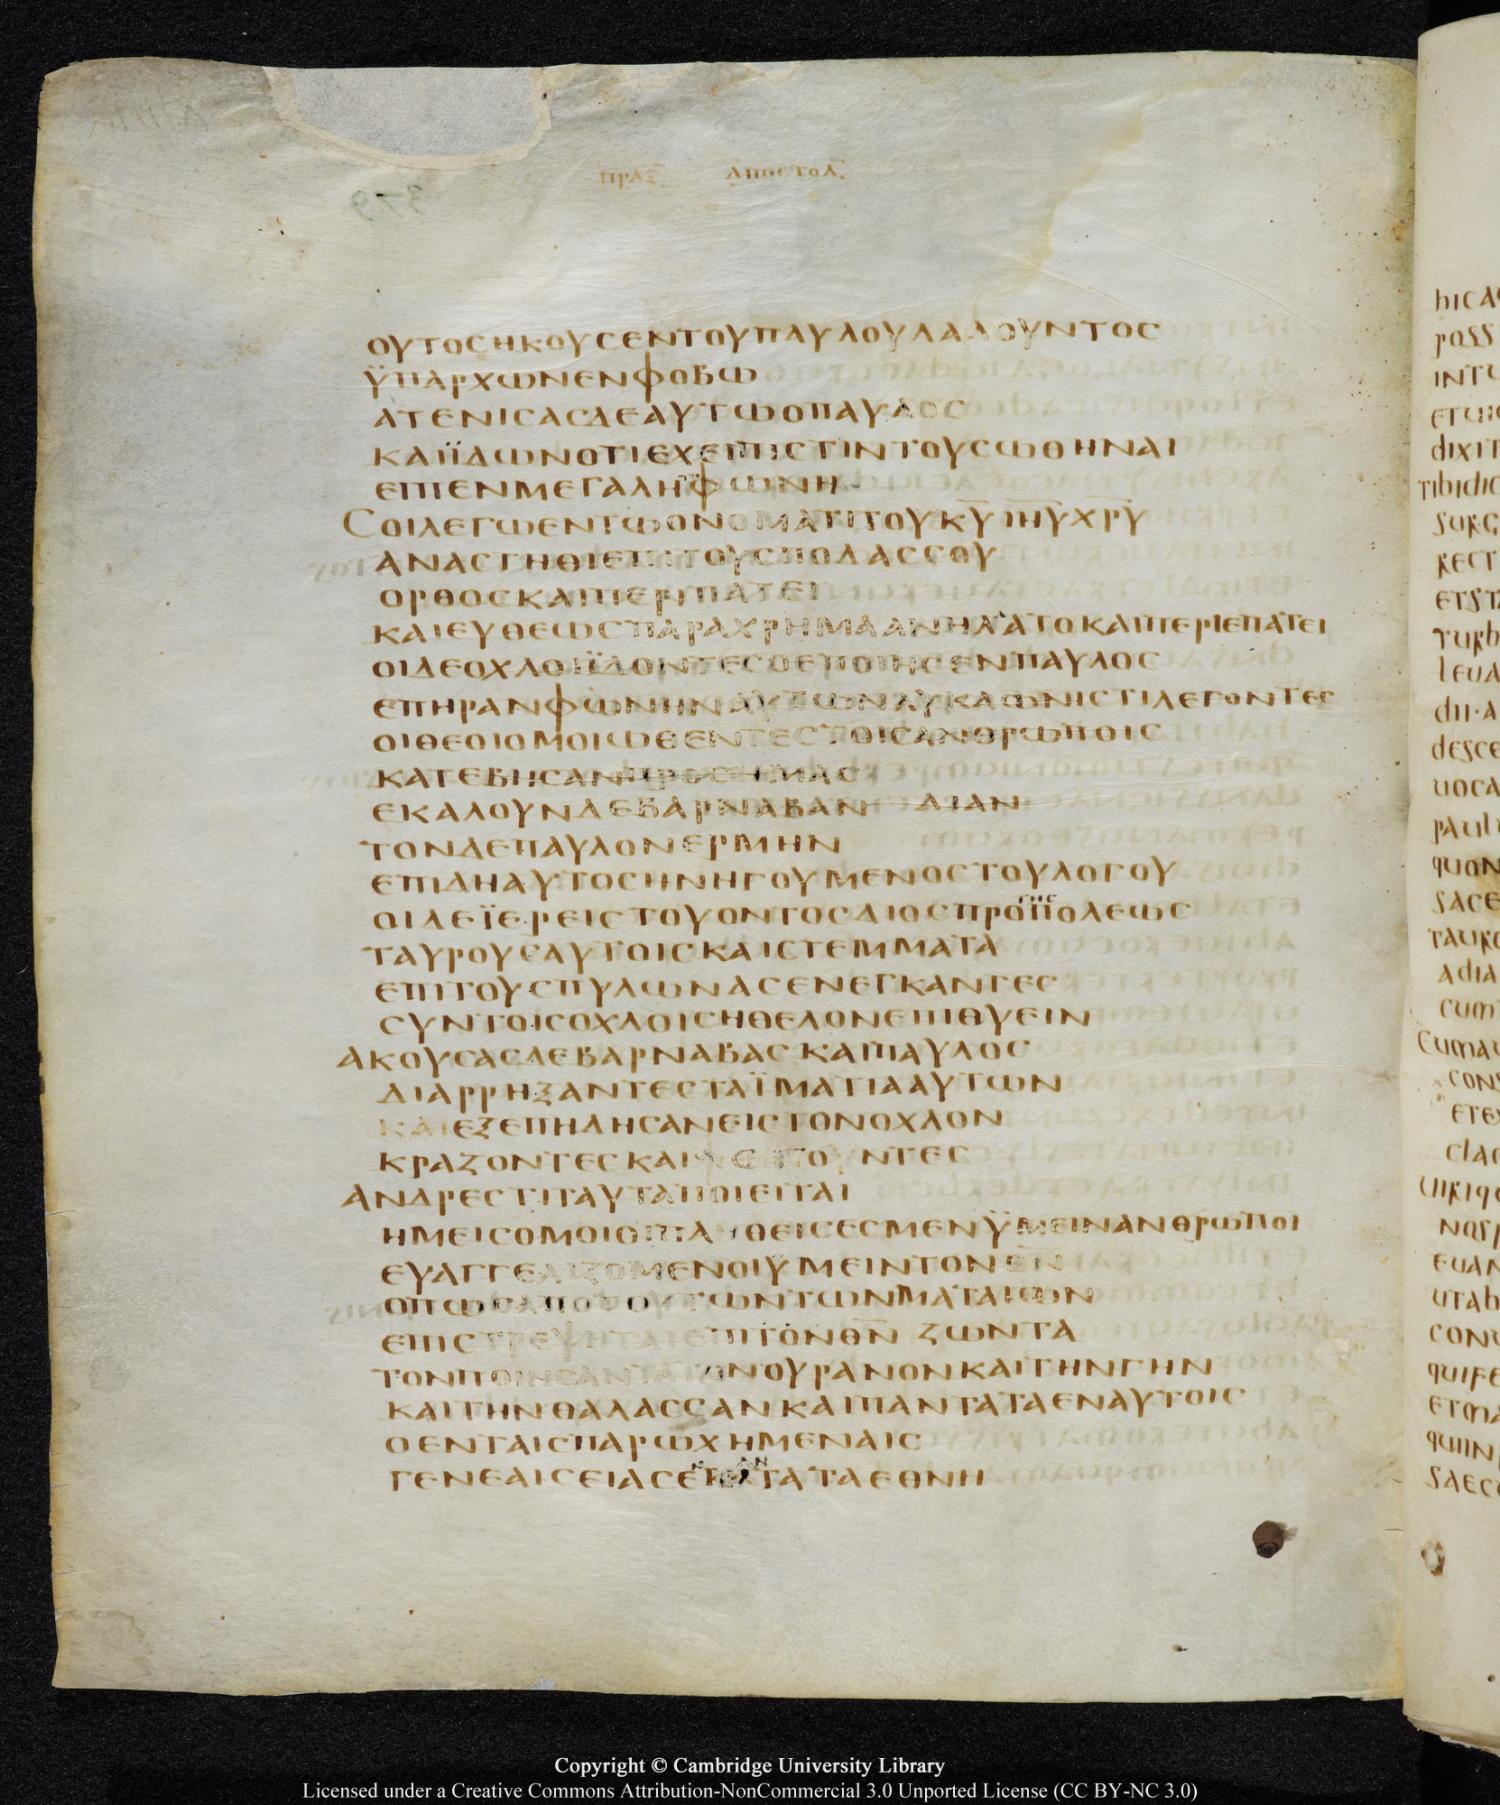 ΠΡΑΞ ΑΠΟΣΤΟΛ
ΟΥΤΟϹΗΚΟΥϹΕΝΤΟΥΠΑΥΛΟΥΛΑΛΟΥΝΤΟϹ
ΫΠΑΡΧΩΝΕΝΦΟΒΩ
ΑΤΕΝΙϹΑϹΔΕΑΥΤΩΟΠΑΥΛΟϹ
ΚΑΙΪΔΩΝΟΤΙΕΧΕΙΠΙϹΤΙΝΤΟΥϹΩΘΗΝΑΙ
ΕΙΠΕΝΜΕΓΑΛΗΦΩΝΗ
ϹΟΙΛΕΓΩΕΝΤΩΟΝΟΜΑΤΙΤΟΥΚ̅Υ̅ΙΗ̅Υ̅ΧΡ̅Υ̅
ΑΝΑϹΤΗΘΙΕΠΙΤΟΥϹΠΟΔΑϹϹΟΥ
ΟΡΘΟϹΚΑΙΠΕΡΙΠΑΤΕΙ
ΚΑΙΕΥΘΕΩϹΠΑΡΑΧΡΗΜΑΑΝΗΛΑΤΟΚΑΙΠΕΡΙΕΠΑΤΕΙ
ΟΙΔΕΟΧΛΟΙΪΔΟΝΤΕϹΟΕΠΟΙΗϹΕΝΠΑΥΛΟϹ
ΕΠΗΡΑΝΦΩΝΗΝΑΥΤΩΝΛΥΚΑΩΝΙϹΤΙΛΕΓΟΝΤΕϹ
ΟΙΘΕΟΙΟΜΟΙΩΘΕΝΤΕϹΤΟΙϹΑΝΘΡΩΠΟΙϹ
ΚΑΤΕΒΗϹΑΝΠΡΟϹΗΜΑϹ
ΕΚΑΛΟΥΝΔΕΒΑΡΝΑΒΑΝ ΔΙΑΝ
ΤΟΝΔΕΠΑΥΛΟΝΕΡΜΗΝ
ΕΠΙΔΗΑΥΤΟϹΗΝΗΓΟΥΜΕΝΟϹΤΟΥΛΟΓΟΥ
ΟΙΔΕΪΕΡΕΙϹΤΟΥΟΝΤΟϹΔΙΟϹΠΡΟΠΟΛΕΩϹ
ΤΑΥΡΟΥϹΑΥΤΟΙϹΚΑΙϹΤΕΜΜΑΤΑ
ΕΠΙΤΟΥϹΠΥΛΩΝΑϹΕΝΕΓΚΑΝΤΕϹ
ϹΥΝΤΟΙϹΟΧΛΟΙϹΗΘΕΛΟΝΕΠΙΘΥΕΙΝ
ΑΚΟΥϹΑϹΔΕΒΑΡΝΑΒΑϹΚΑΙΠΑΥΛΟϹ
ΔΙΑΡΡΗΞΑΝΤΕϹΤΑΪΜΑΤΙΑΑΥΤΩΝ
ΚΑΙΕΞΕΠΗΔΗϹΑΝΕΙϹΤΟΝΟΧΛΟΝ
ΚΡΑΖΟΝΤΕϹΚΑΙ ΝΤΕϹ
ΑΝΔΡΕϹΤΙΤΑΥΤΑΠΟΙΕΙΤΑΙ
ΗΜΕΙϹΟΜΟΙΟΠΑΘΕΙϹΕϹΜΕΝΫΜΕΙΝΑΝΘΡΩΠΟΙ
ΕΥΑΓΓΕΛΙΖΟΜΕΝΟΙΫΜΕΙΝΤΟΝΘ̅Ν̅
ΟΠΩϹΑΠΟΤΟΥΤΩΝΤΩΝΜΑΤΑΙΩΝ
ΕΠΙϹΤΡΕΨΗΤΑΙΕΠΙΤΟΝΘ̅Ν̅ ΖΩΝΤΑ
ΤΟΝΠΟΙΗϹΑΝΤΑΤΟΝΟΥΡΑΝΟΝΚΑΙΤΗΝΓΗΝ
ΚΑΙΤΗΝΘΑΛΑϹϹΑΝΚΑΙΠΑΝΤΑΤΑΕΝΑΥΤΟΙϹ
ΟΕΝΤΑΙϹΠΑΡΩΧΗΜΕΝΑΙϹ
ΓΕΝΕΑΙϹΕΙΑϹΕ ΤΑΤΑΕΘΝΗ
Copyright © Cambridge University Library
Licensed under a Creative Commons Attribution-NonCommercial 3.0 Unported License (CC BY-NC 3.0)